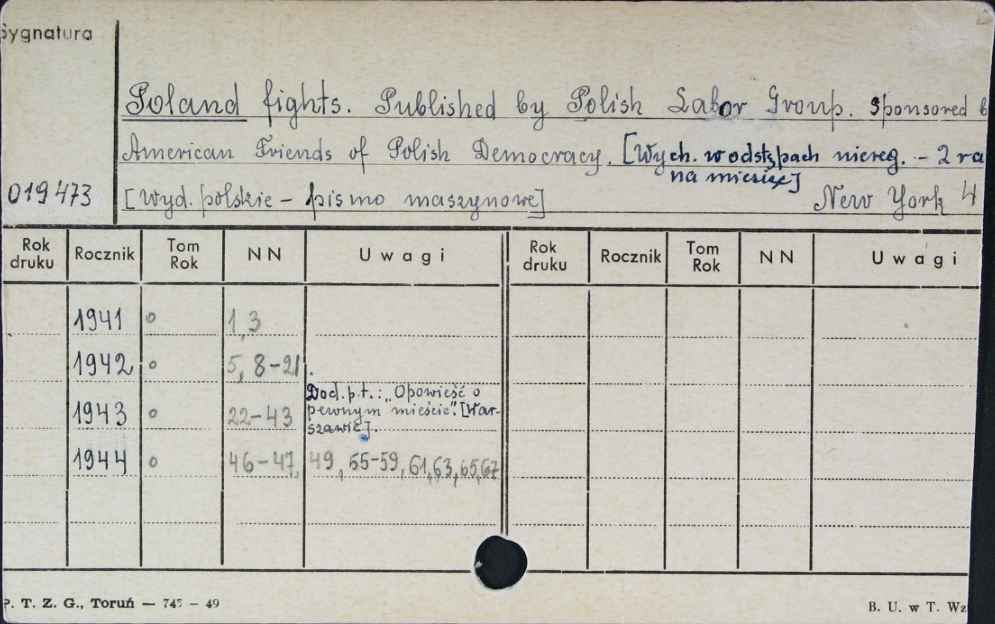 Sygnatura
Poland fights. Published by Polish Labor Group. Sponsored b
American Friends of Polish Democracy. [Wych. w odstępach niereg. – 2 ra
na miesiąc]
019473 [Wyd. polskie – pismo maszynowe] New York 4
Rok druku Rocznik Tom Rok NN Uwagi Rok druku Rocznik Tom Rok NN Uwagi
1941 o 1, 3
1942 o 5, 8-21.
Dod. p.t.: „Opowieść o
1943 o 22-43 pewnym mieście". [War-
szawie].
1944 o 46-47, 49, 55-59, 61, 63, 65, 67
P. T. Z. G., Toruń — 745 – 49 B. U. w T. Wz